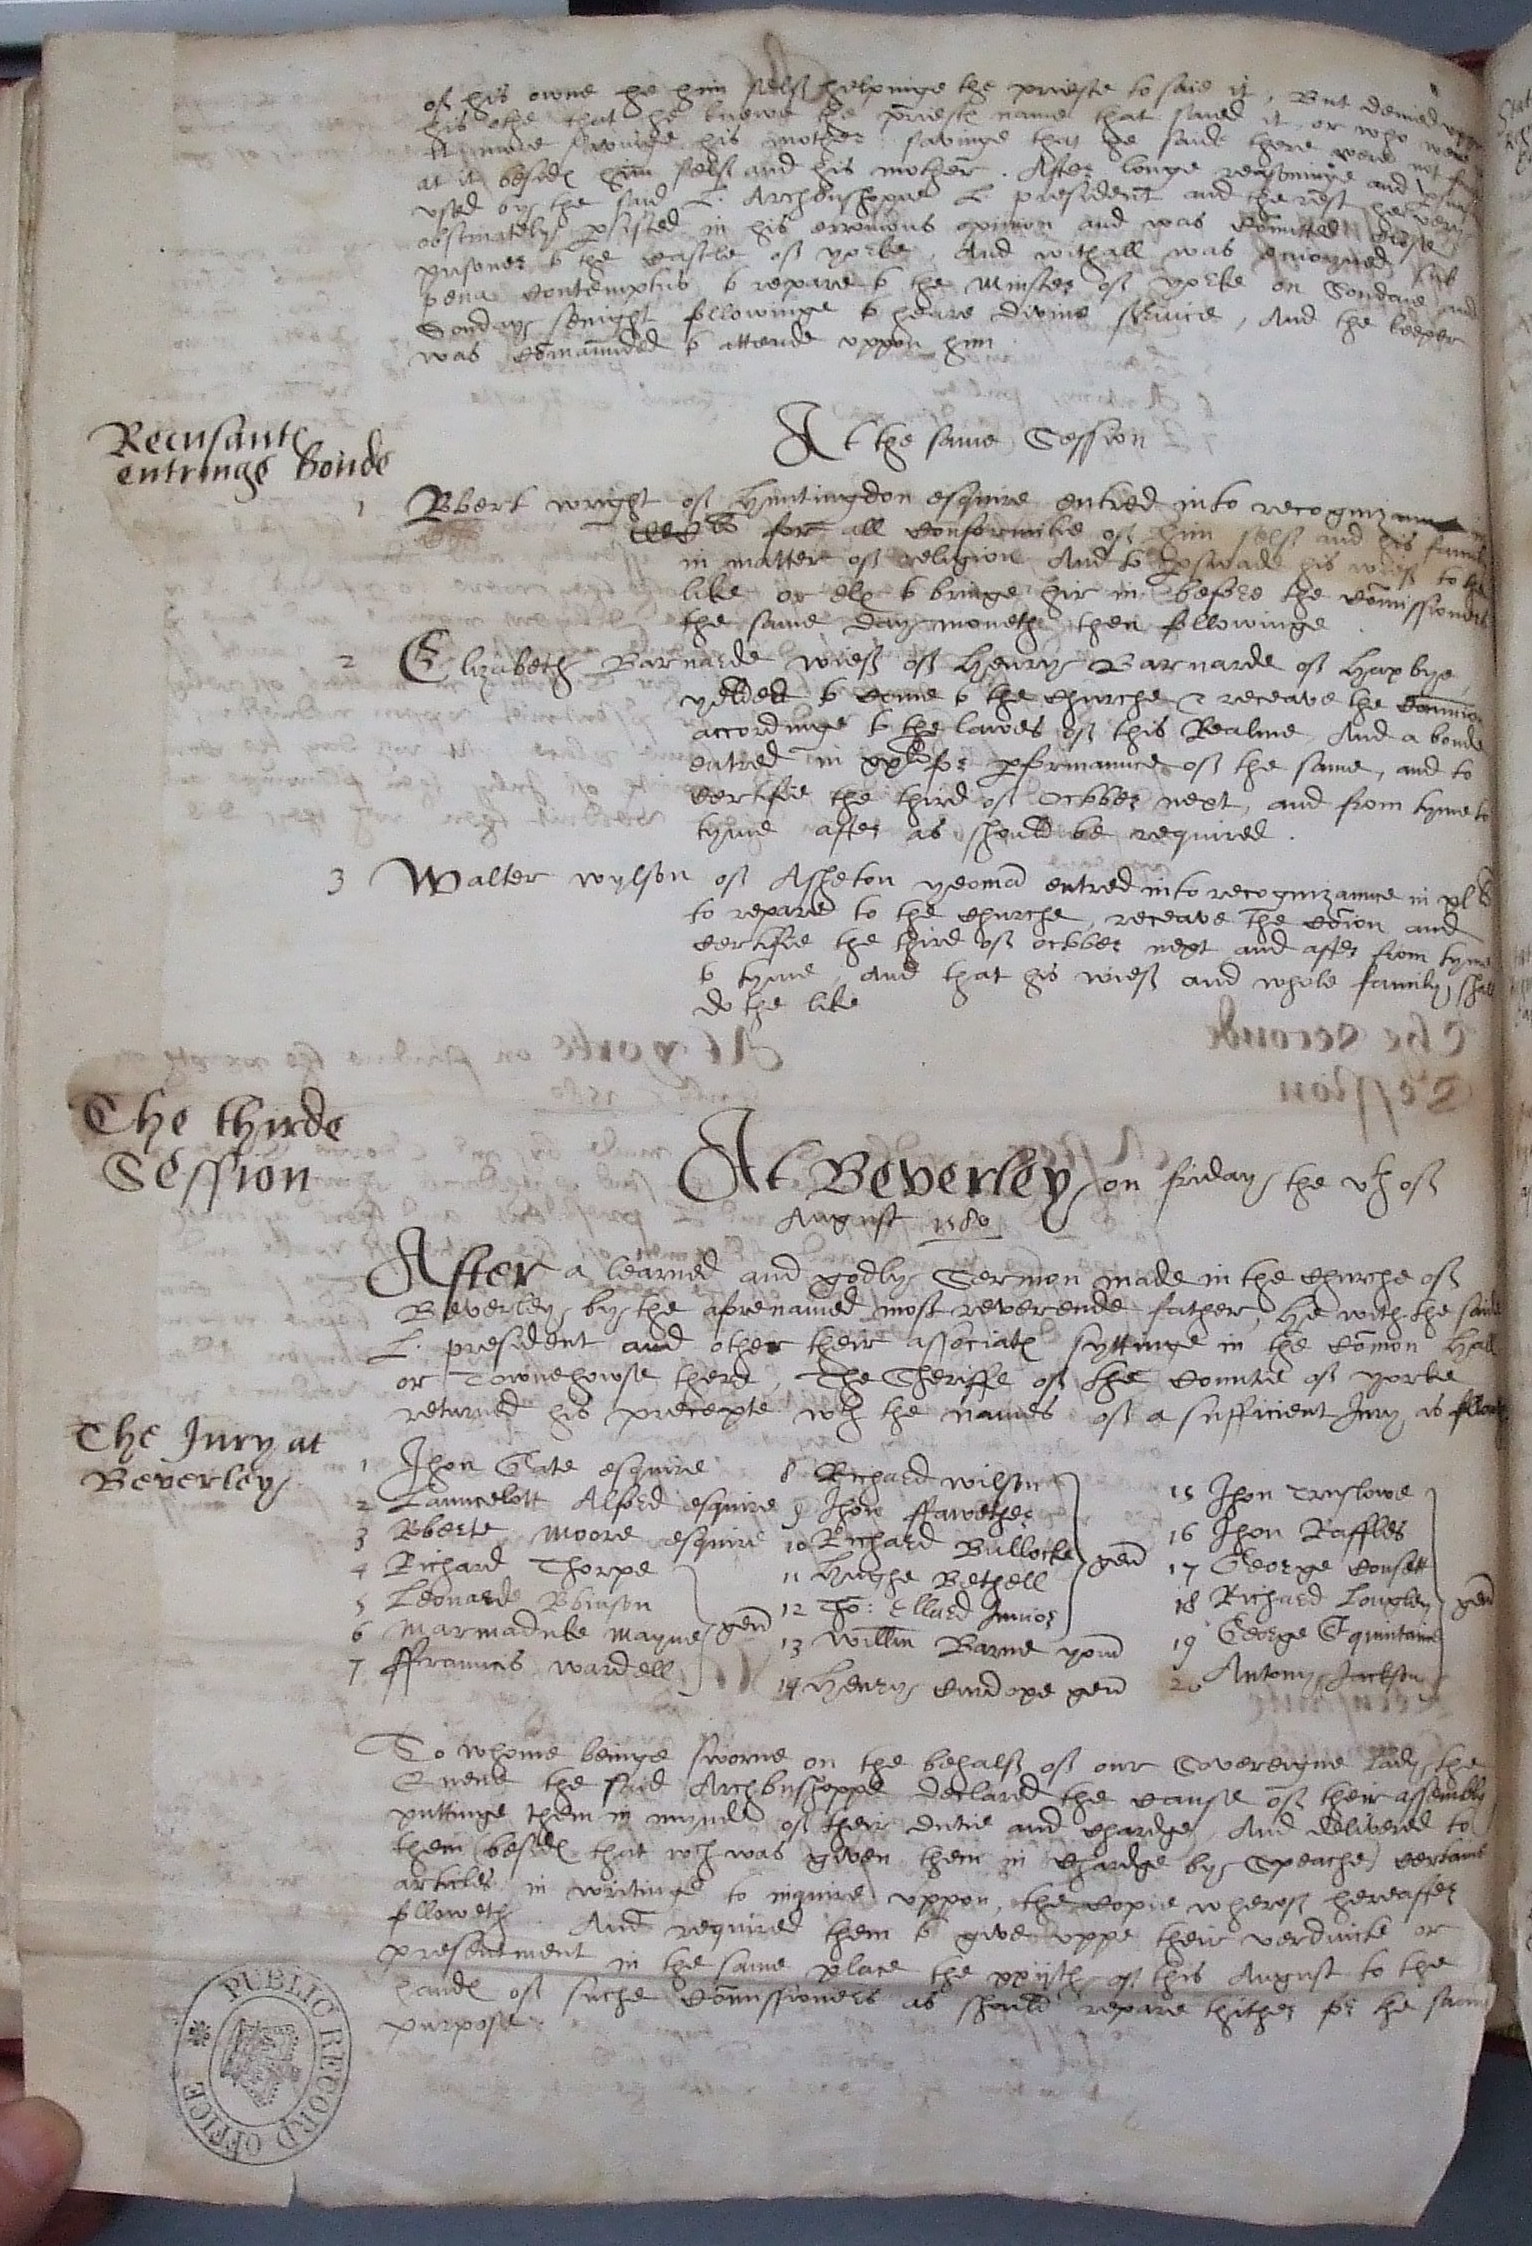 of his owne he him self helpinge the prieste to saie it, But denied uppon
his othe that he knewe the priests name that saied it or who were
at it besides him self and his mother. After longe reasoninge and perswasion
used by the said L. Archbushoppe L. president and the rest he very
obstinately persisted in his erronious opinion and was comitted close
prisoner to the castle of yorke, And withall was enioyned sub
pena contemptus to repare to the Minster of yorke on Sondaie and
Sonday senight followinge to heare divine service, And the keeper
was comaunded to attende uppon him
Recusants
entringe bonde
At the same Session
1 Robert wright of Huntingdon esquire entred into recognizaunce in
for all conformitie of him self and his family
in matter of religion And to perswade his wief to the
like or els to bringe hir in before the comissioners
the same day moneth then followinge
2 Elizabeth Barnarde wief of Henry Barnarde of Haxbye,
yelded to come to the churche & receave the comunion
accordinge to the lawes of this Realme And a bonde
entred in xxli for performaunce of the same, and to
certifie the third of October next, and from tyme to
tyme after as should be required.
3 Walter wylson of Assheton yeoman entred into recognizaunce in xl li
to repare to the churche, receave the comunion and
certifie the third of october next and after from tyme
to tyme, And that his wief and whole family shall
do the like
The thirde
Session
At Beverley on friday the vth of
August 1580
After a learned and godly Sermon made in the churche of
Beverley by the aforenamed most reverende father, He with the saide
L. president and other their associats syttinge in the comon Hall
or Townehowse there, The Sheriffe of the countie of yorke
returned his precepte wth the names of a sufficient Jury as followeth
The Jury at
Beverley
1 Jhon Gate esquire
2 Launcelott Alford esquire
3 Roberte Moore esquire
4 Richard Thorpe
5 Leonarde Robinson
6 Marmaduke Mayne
7 ffrauncis wardell
gen
8 Richard wilson
9 Jhon ffawether
10 Richard Bullocke
11 Hughe Bethell
12 Jo: Ellard Junior
gen
13 Willm Barne yom
14 Henry Cundope gen
15 Jhon Truslowe
16 Jhon Raffles
17 George Consett
18 Richard Longley
19 George Gquintaine
20 Antony Jackson
gen
To whome beinge sworne on the behalf of our Sovereigne Lady the
Quene the said Archbushoppe declared the cause of their assembly
puttinge them in mynde of their dutie and chardge, And delivered to
them (besides that wch was given them in chardge by Speache) certaine
articles in writinge to inquire uppon, the copie wherof hereafter
followeth. And required them to give uppe their verdicte or
presentment in the same place the xxijth of this August to the
hands of suche comissioners as should repare thither for the same
purpose.
PUBLIC RECORD OFFICE